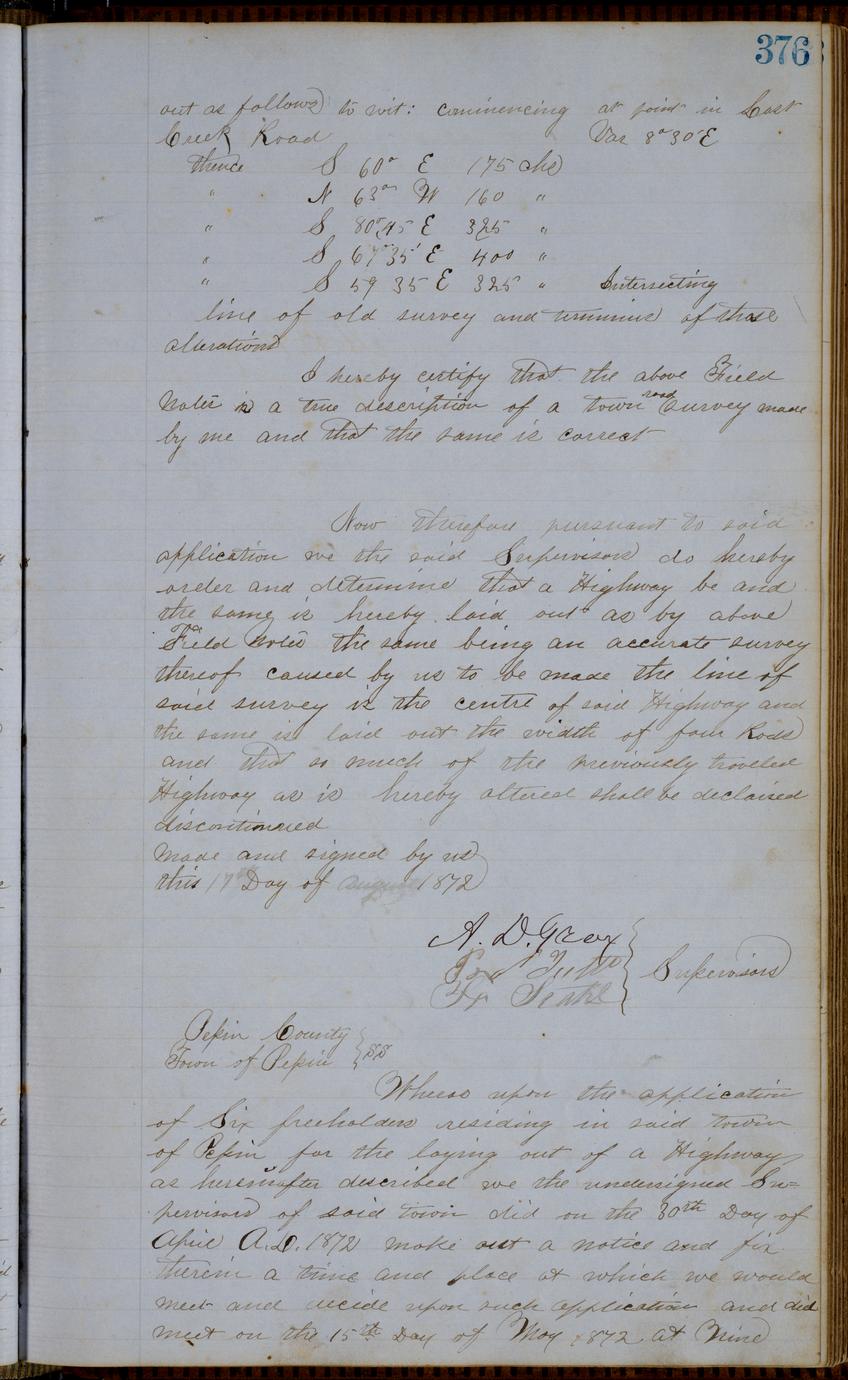 376
out as follows to wit: commencing at point in Lost
Creek Road Var 8° 30' E
thence S 60° E 175 chs
" N 63° W 160 "
" S 80° 45 E 325 "
" S 67° 35' E 400 "
" S 59 35 E 325 " Intersecting
line of old survey and terminus of those
alterations
I hereby certify that the above Field
Notes is a true description of a town road survey made
by me and that the same is correct
Now therefore pursuant to said
application we the said Supervisors do hereby
order and determine that a Highway be and
the same is hereby laid out as by above
Field Notes the same being an accurate survey
thereof caused by us to be made the line of
said survey is the centre of said Highway and
the same is laid out the width of four Rods
and that so much of the previously traveled
Highway as is hereby altered shall be declaired
discontinued
Made and signed by us
this 17th Day of August 1872
A. D. Gray
Supervisors
Pepin County
Town of Pepin } SS
Wheras upon the application
of Six freeholders residing in said town
of Pepin for the laying out of a Highway
as hereinafter described we the undersigned Su=
pervisors of said town did on the 30th Day of
April A.D. 1872 make out a notice and fix
therein a time and place at which we would
meet and decide upon such application and did
meet on the 15th Day of May 1872 at Nine